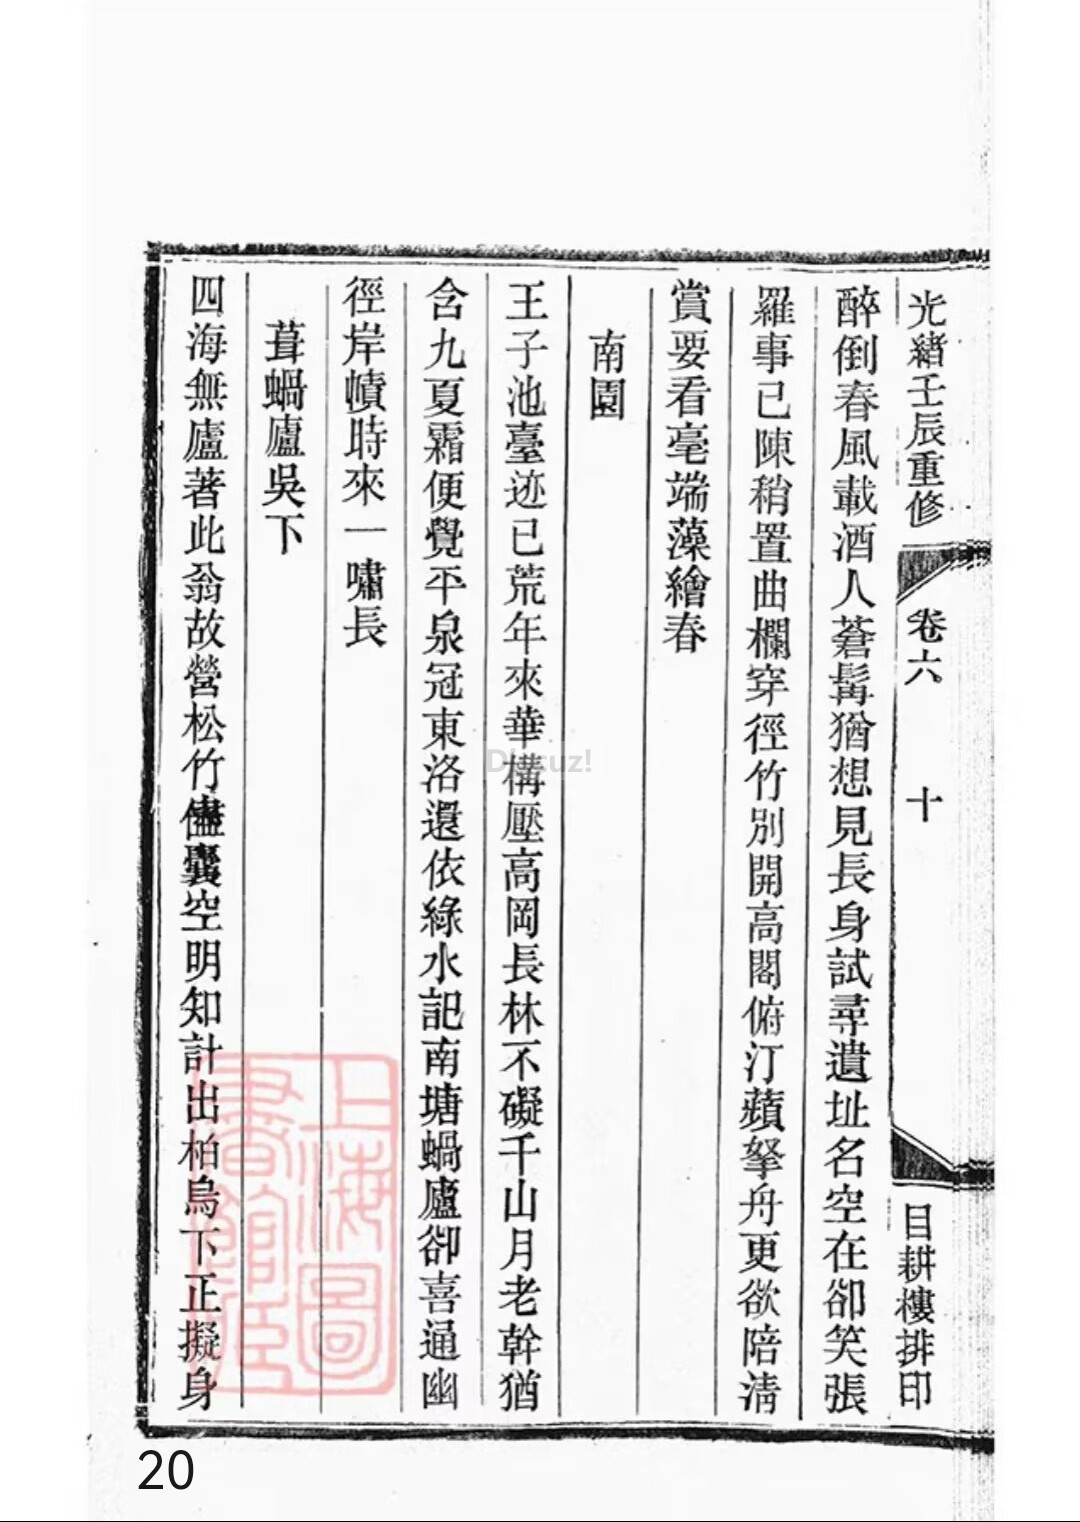 光緒壬辰重修 卷六 十 目耕樓排印
醉倒春風載酒人蒼髯猶想見長身試尋遺址名空在卻笑張
羅事已陳稍置曲欄穿徑竹別開高閣俯汀蘋拏舟更欲陪清
賞要看毫端藻繪春
南園
王子池臺迹已荒年來華構壓高岡長林不礙千山月老幹猶
含九夏霜便覺平泉冠東洛還依綠水記南塘蝸廬卻喜通幽
徑岸幘時來一嘯長
葺蝸廬吳下
四海無廬著此翁故營松竹儘囊空明知計出柏烏下正擬身
上海圖
書館藏
Discuz!
20